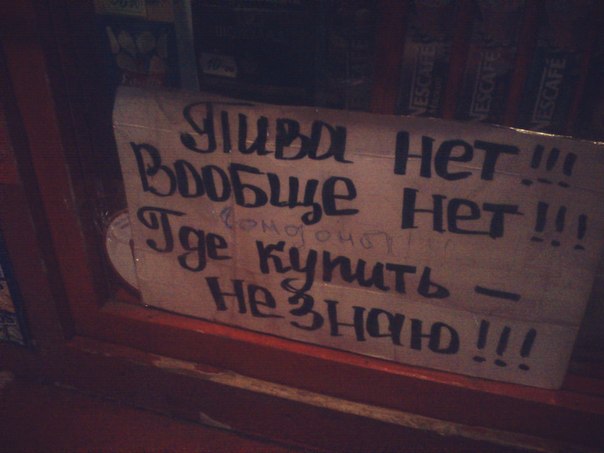 NESCAFE
NESCAFE
NESCAFE
Пива нет!!!
Вообще нет!!!
Где купить –
не знаю!!!